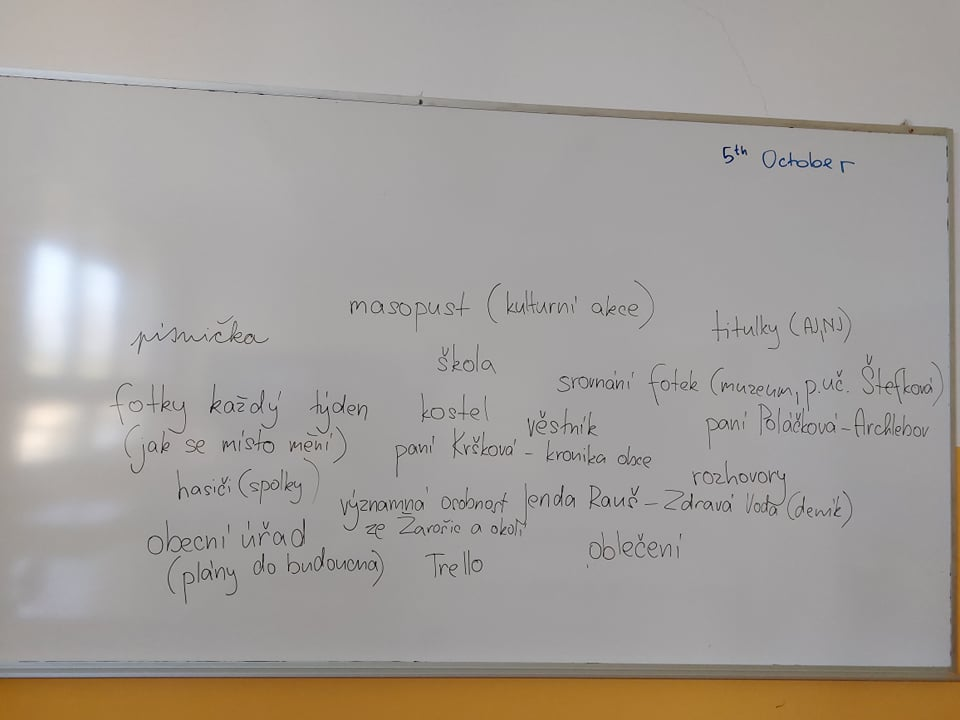 5th October
masopust (kulturní akce)
písnička
titulky (AJ, NJ)
škola
srovnání fotek (muzeum, p. uč. Štefková)
fotky každý týden
(jak se místo mění)
kostel
věstník
paní Poláčková - Archlebov
paní Kršková - kronika obce
hasiči (spolky)
rozhovory
významná osobnost
ze Žarošic a okolí
Jenda Rauš - Zdravá Voda (deník)
obecní úřad
(plány do budoucna)
Trello
oblečení